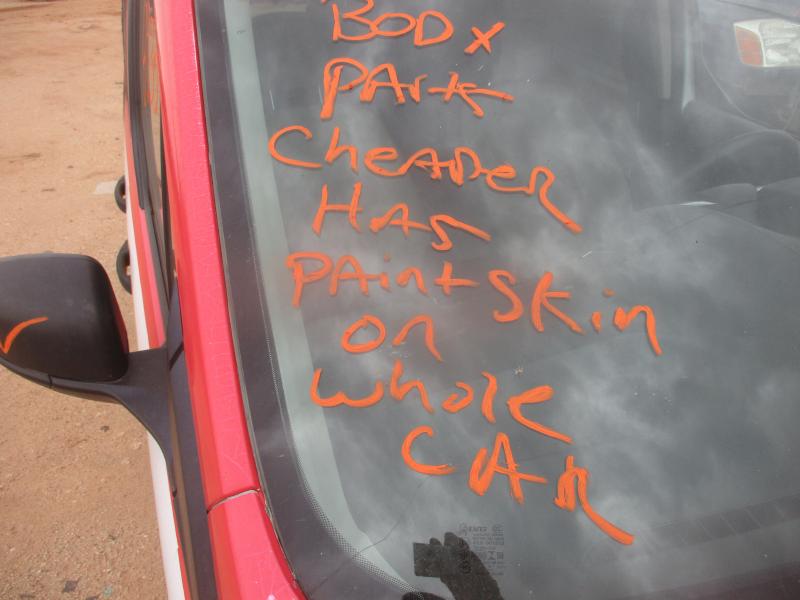 BODX
PArk
CheAper
HAS
PAint Skin
on
whole
CAR